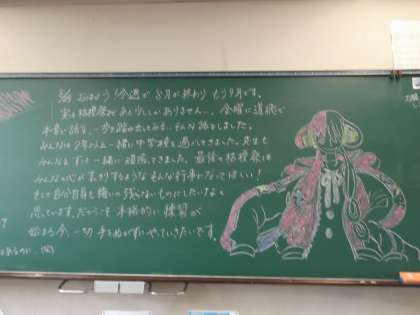 おはよう！今週で8月が終わり もう9月です。
実は桔梗祭まであと少ししかありません…。金曜に道徳で
本音で語り、一歩踏み出してみる…そんな話をしました。
みんなは2年の一緒に中学校を過ごしてきました。先生も
みんなとずっと一緒に頑張ってきました。最後の桔梗祭は
みんなの心が　するようなそんな行事になってほしい！
そして自分自身も悔いの残らないものにしたいなと
思っています。だからこそ 本格的に練習が
始まる今、一切 手をぬかずにやっていきたいです